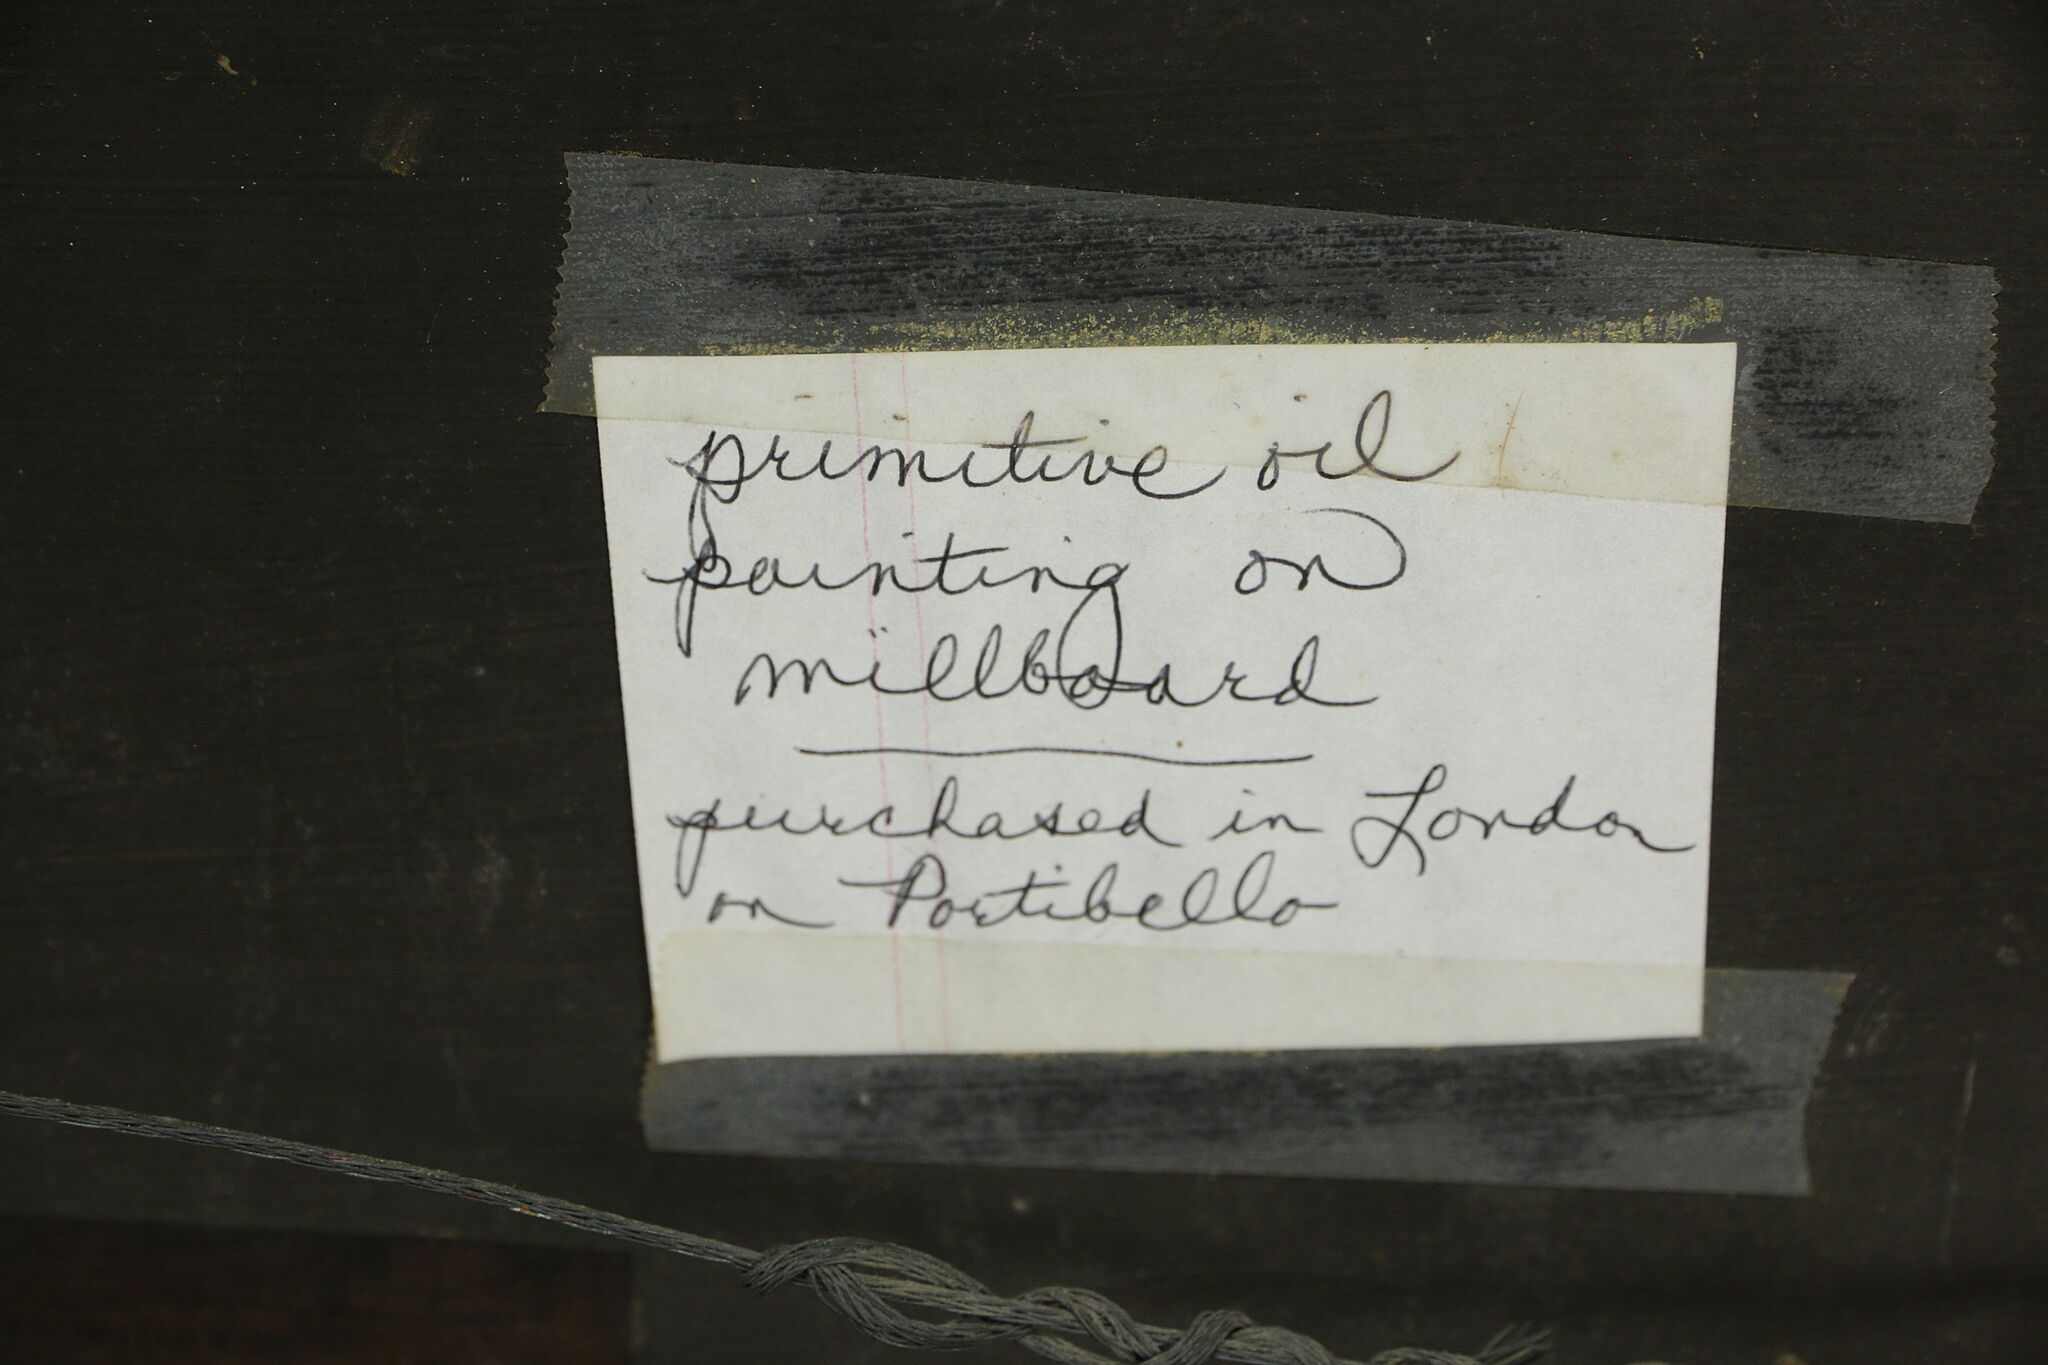 primitive oil
painting on
millboard
purchased in London
on Portibello